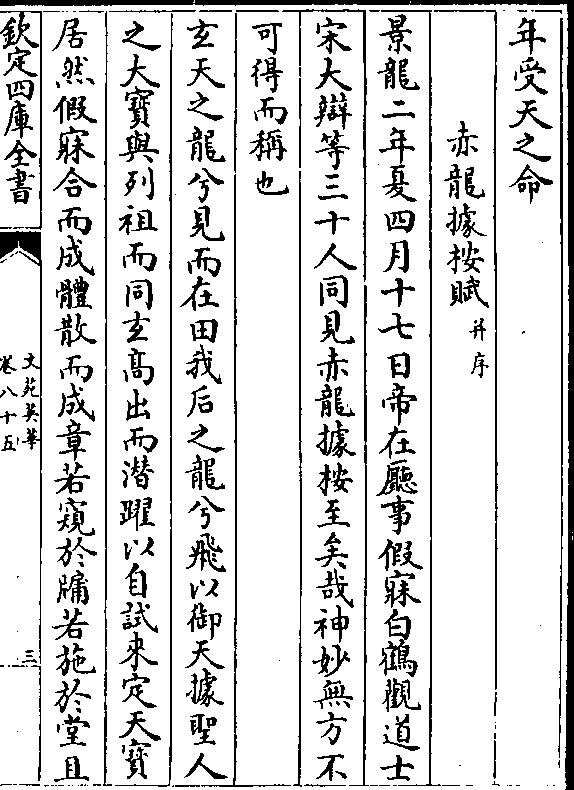 年受天之命
赤龍據按賦 并序
景龍二年夏四月十七日帝在廳事假寐白鶴觀道士
宋大辯等三十人同見赤龍據桉至矣哉神妙無方不
可得而稱也
玄天之龍兮見而在田我后之龍兮飛以御天據聖人
之大寶與列祖而同玄高出而潛躍以自試來定天寶
居然假寐合而成體散而成章若窺於牖若施於堂且
欽定四庫全書
文苑英華
卷八十五
三